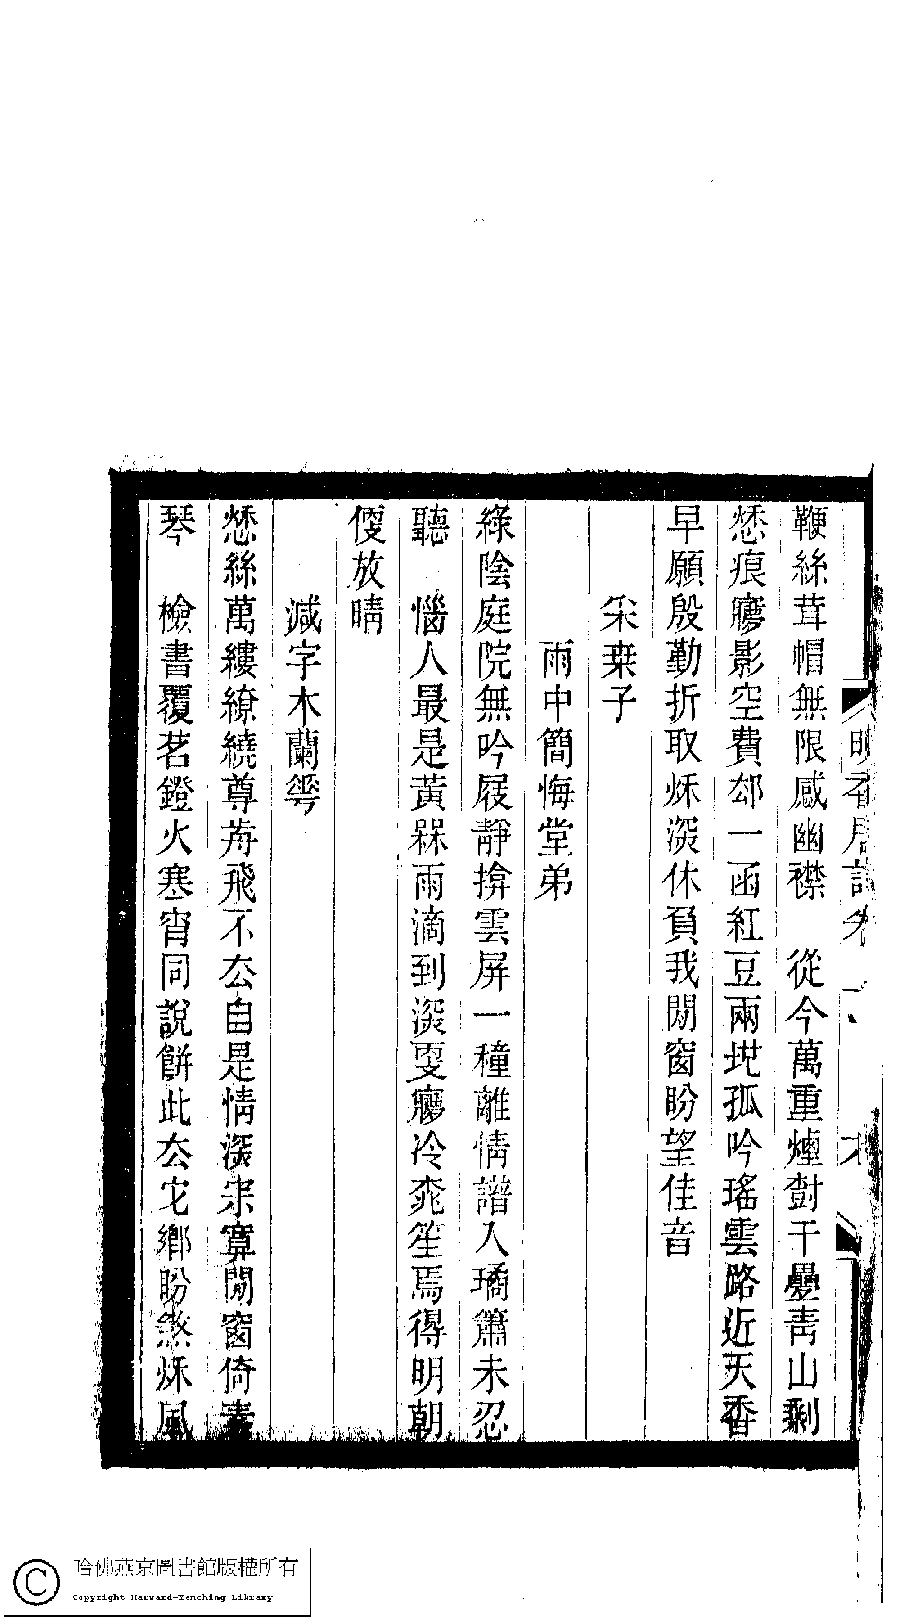 鞭絲茸帽無限感幽襟　從今萬重煙對千疊青山剩
愁痕癯影空費郄一函紅豆兩地孤吟瑤雲路近天香
早願殷勤折取秌深休負我閒窗盼望佳音
采桒子
雨中簡悔堂弟
綠陰庭院無吟屐靜掩雲屏一種離情譜入璚簫未忍
聽　惱人最是黃槑雨滴到深叓癯冷窕笙焉得明朝
傻放晴
減字木蘭華
愁絲萬縷繚繞尊歬飛不厺自是情深宋寞閒窗倚素
琴　檢書覆茗鐙火寒宵同說餅此厺它鄉盼煞秌風
香周詞卷一
哈佛燕京圖書館版權所有
Copyright Harvard-Yenching Library